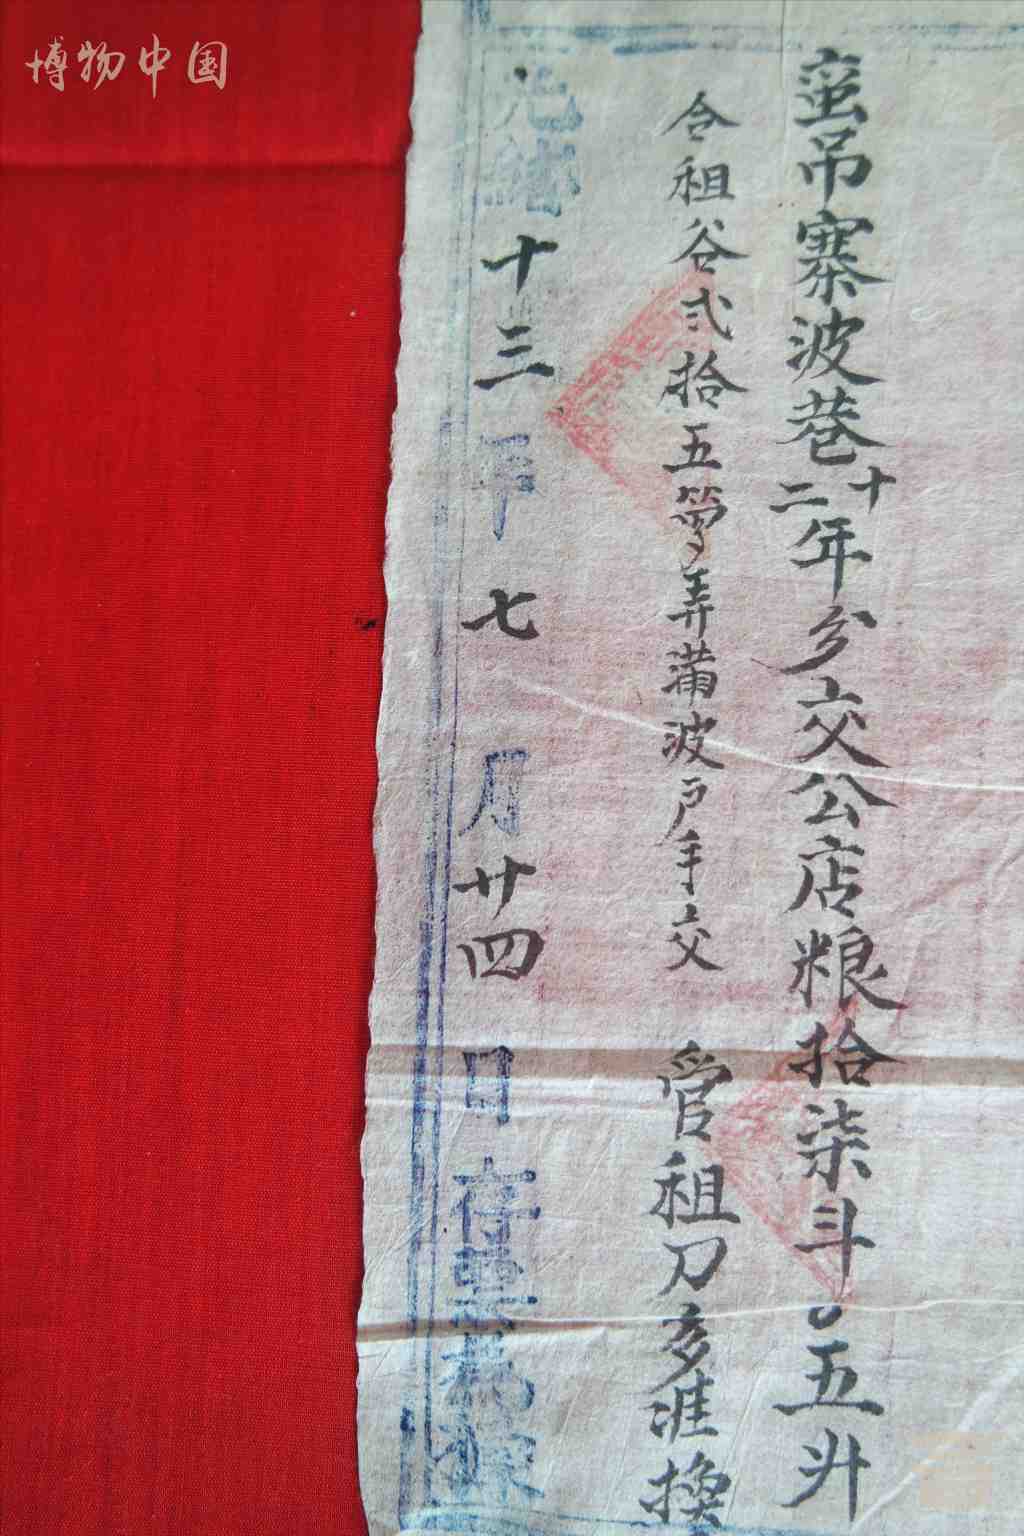 博物中国
蛮吊寨波巷十二年分交公店粮拾柒斗〇五升
合租谷弍拾五箩弄满波户手交 管租刀多准换
光绪十三年七月廿四日存票執照